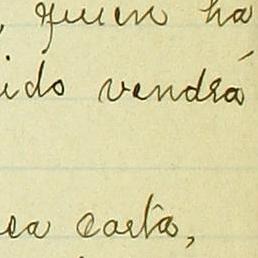 , quien ha
ido vendrá
ea carta,